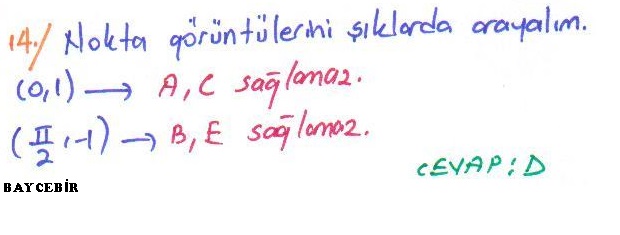 14./ Nokta görüntülerini şıklarda arayalım.
(0,1) → A, C sağlamaz.
(π/2, -1) → B, E sağlamaz.
CEVAP: D
BAYCEBİR